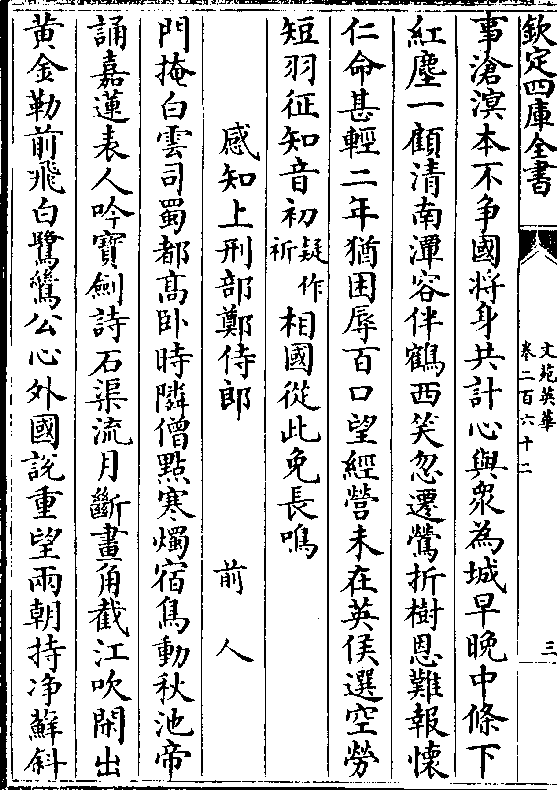 欽定四庫全書
文苑英華
卷二百六十二
三
事滄溟本不争國將身共計心與衆為城早晚中條下
紅塵一顧清南潭容伴鶴西笑忽遷鶯折樹恩難報懷
仁命甚輕二年猶困辱百口望經營未在英侯選空勞
短羽征知音初疑作祈相國從此免長鳴
感知上刑部鄭侍郎 前人
門掩白雲司蜀都高卧時隣僧點寒燭宿鳥動秋池帝
誦嘉蓮表人吟寶劍詩石渠流月斷畫角截江吹閑出
黄金勒前飛白鷺鷥公心外國說重望兩朝持净蘚斜